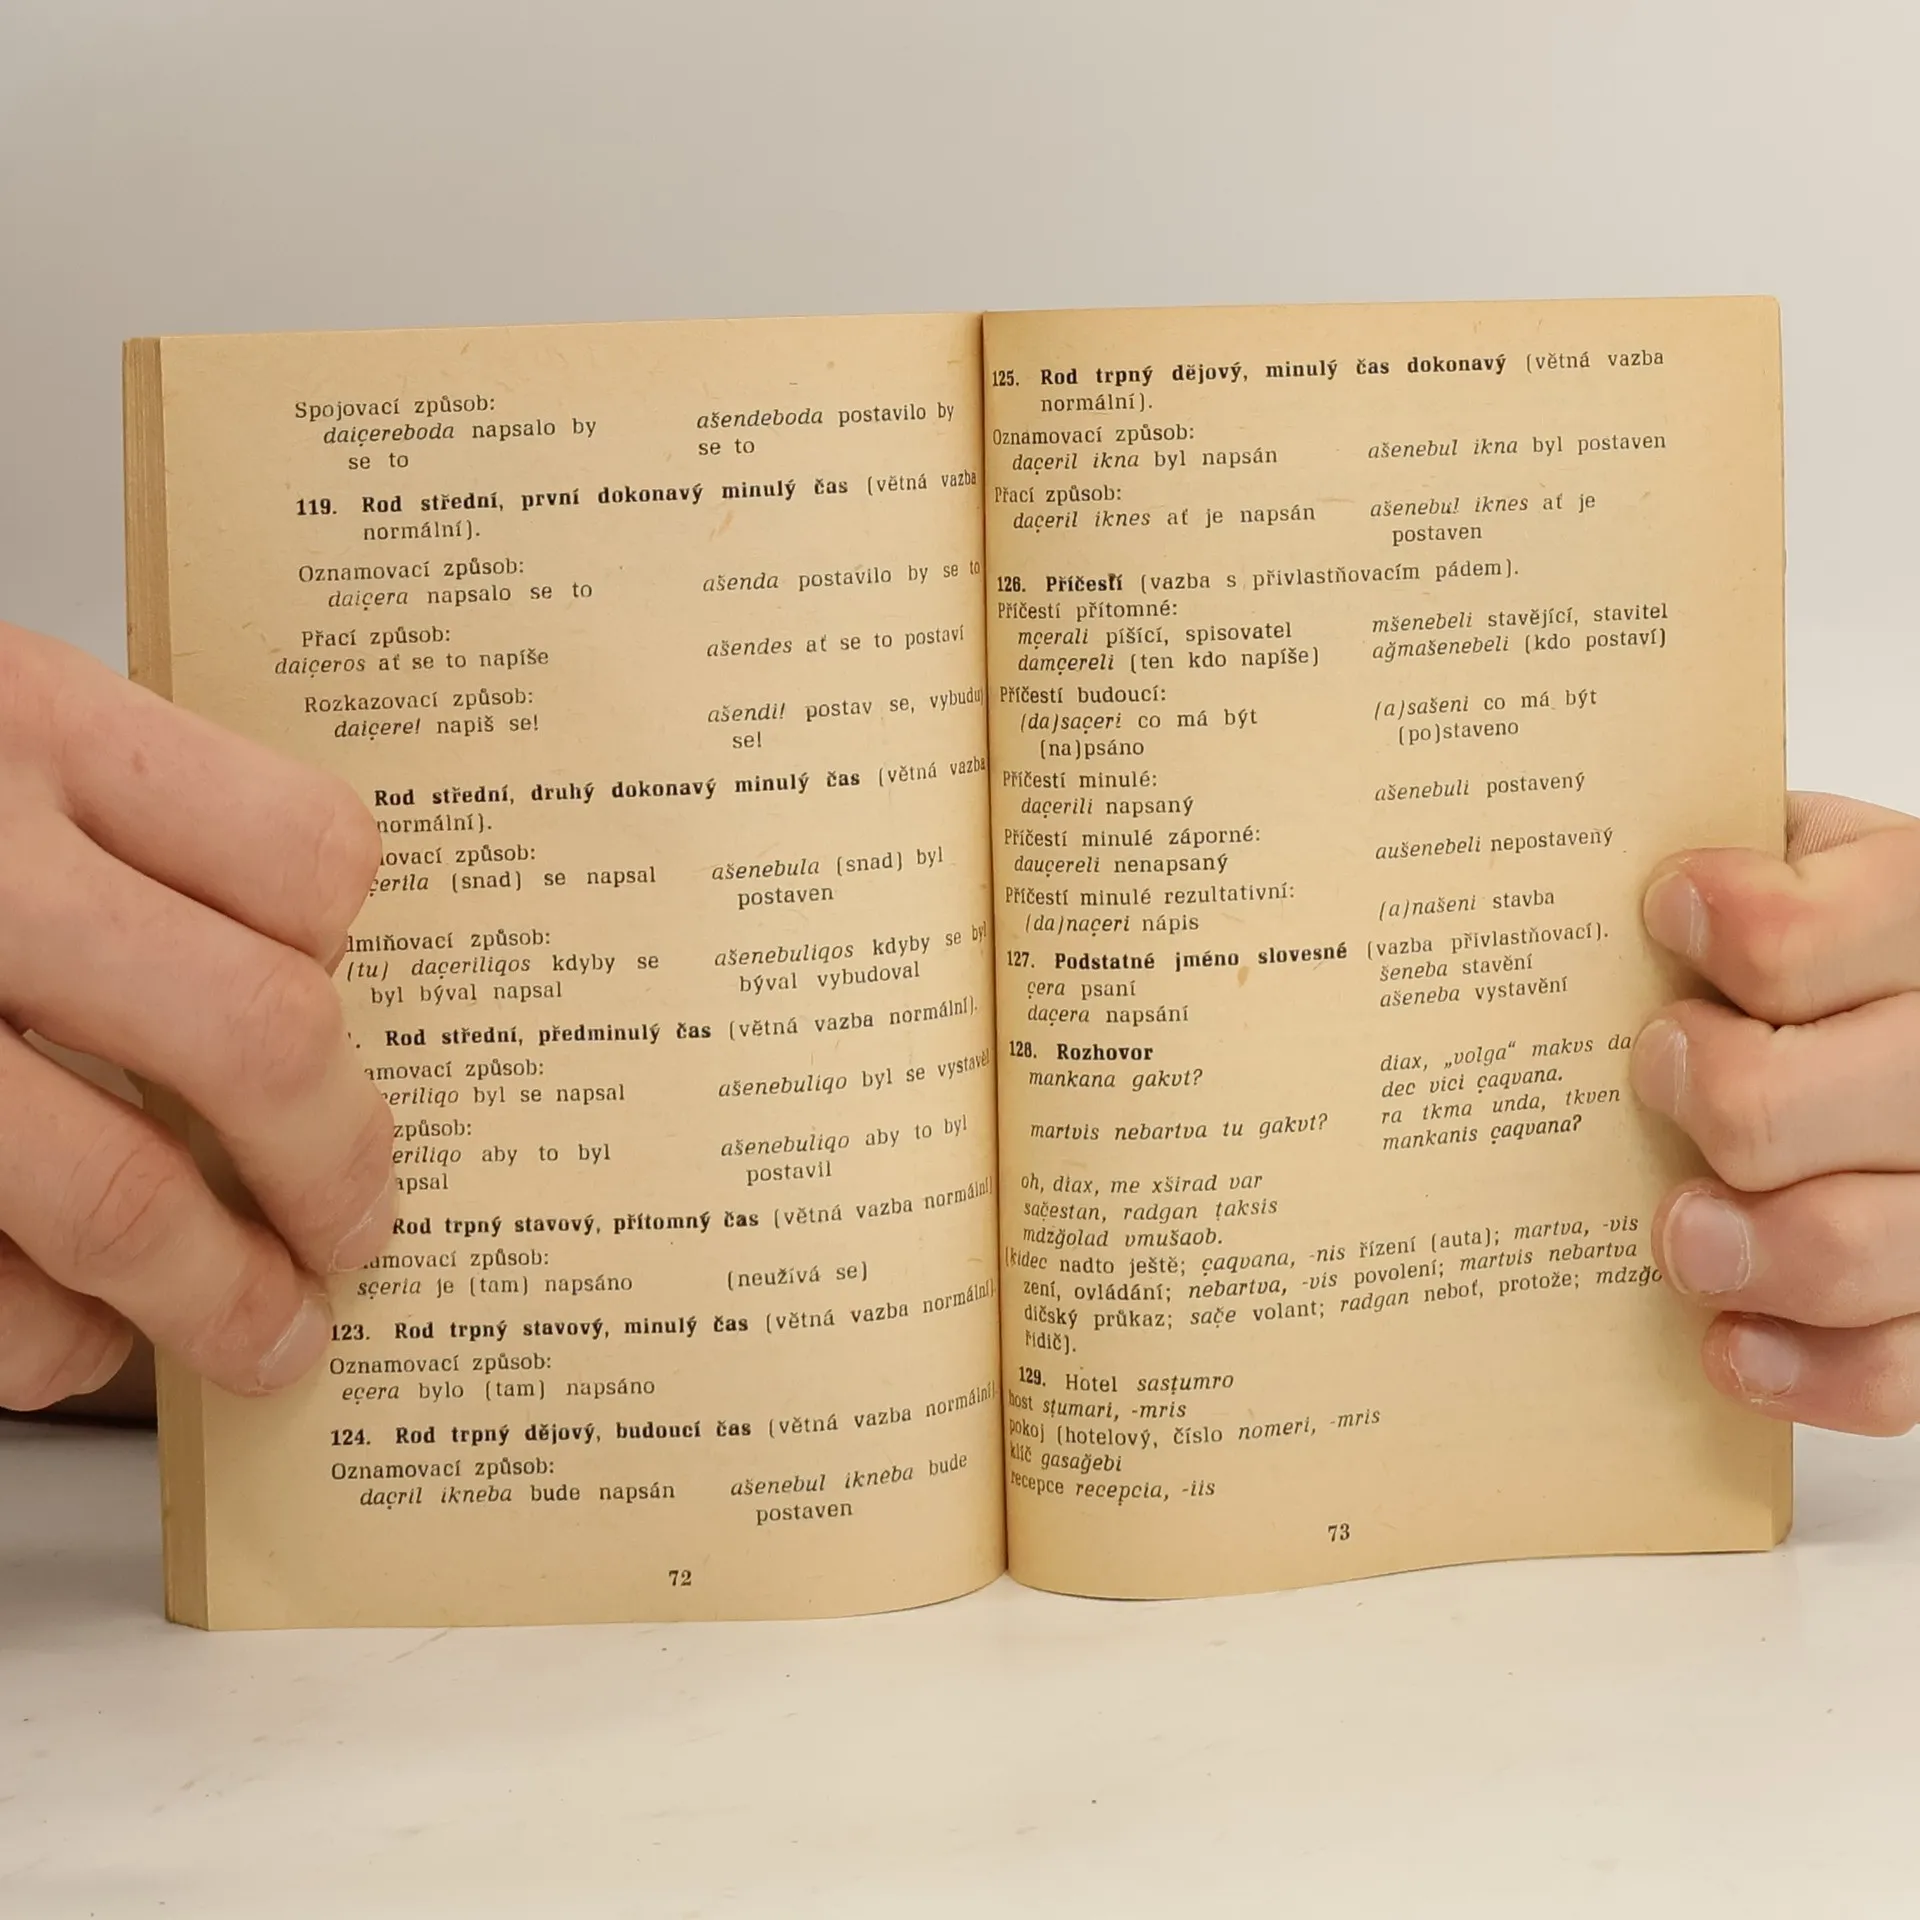 Spojovací způsob:
daiçereboda napsalo by se to
ašendeboda postavilo by se to
119. Rod střední, první dokonavý minulý čas (větná vazba
normální).
Oznamovací způsob:
daiçera napsalo se to
ašenda postavilo by se to
Přací způsob:
daiçeros ať se to napíše
ašendes ať se to postaví
Rozkazovací způsob:
daiçere! napiš se!
ašendi! postav se, vybuduj
se!
Rod střední, druhý dokonavý minulý čas (větná vazba
normální).
způsob:
(snad) se napsal
ašenebula (snad) byl
postaven
způsob:
(tu) daçeriliqos kdyby se
byl býval napsal
ašenebuliqos kdyby se byl
býval vybudoval
Rod střední, předminulý čas (větná vazba normální).
způsob:
byl se napsal
ašenebuliqo byl se vystavěl
způsob:
aby to byl
ašenebuliqo aby to byl
postavil
Rod trpný stavový, přítomný čas (větná vazba normální)
způsob:
sçeria je (tam) napsáno
(neužívá se)
123. Rod trpný stavový, minulý čas (větná vazba normální).
Oznamovací způsob:
eçera bylo (tam) napsáno
124. Rod trpný dějový, budoucí čas (větná vazba normální).
Oznamovací způsob:
daçril ikneba bude napsán
ašenebul ikneba bude
postaven
72
125. Rod trpný dějový, minulý čas dokonavý (větná vazba
normální).
Oznamovací způsob:
daçeril ikna byl napsán
ašenebul ikna byl postaven
Přací způsob:
daçeril iknes ať je napsán
ašenebul iknes ať je
postaven
126. Příčestí (vazba s přivlastňovacím pádem).
Příčestí přítomné:
mçerali píšící, spisovatel
mšenebeli stavějící, stavitel
damçereli (ten kdo napíše)
ağmašenebeli (kdo postaví)
Příčestí budoucí:
(da)saçeri co má být
(na)psáno
(a)sašeni co má být
(po)staveno
Příčestí minulé:
daçerili napsaný
ašenebuli postavený
Příčestí minulé záporné:
dauçereli nenapsaný
aušenebeli nepostavený
Příčestí minulé rezultativní:
(da)naçeri nápis
(a)našeni stavba
127. Podstatné jméno slovesné (vazba přivlastňovací).
çera psaní
šeneba stavění
daçera napsání
ašeneba vystavění
128. Rozhovor
mankana gakvt?
diax, „volga“ makvs da
dec vici çaqvana.
martvis nebartva tu gakvt?
ra tkma unda, tkven
mankanis çaqvana?
oh, diax, me xširad var
sačestan, radgan ţaksis
mdzğolad vmušaob.
(kidec nadto ještě; çaqvana, -nis řízení (auta); martva, -vis
zení, ovládání; nebartva, -vis povolení; martvis nebartva
dičský průkaz; sače volant; radgan neboť, protože;
řidič).
129. Hotel sasţumro
host sţumari, -mris
pokoj (hotelový, číslo nomeri, -mris
klíč gasağebi
recepce recepcia, -iis
73